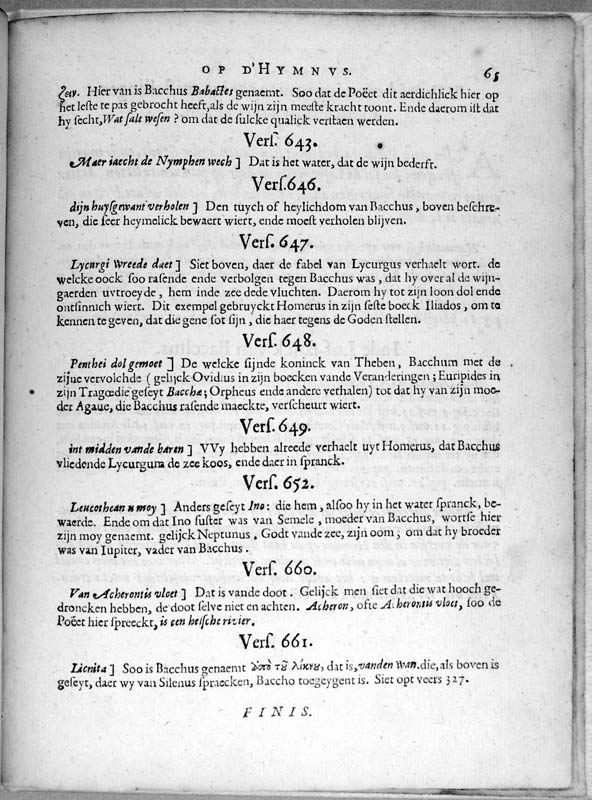 OP D'HYMNVS. 65
ζειν. Hier van is Bacchus Babactes genaemt. Soo dat de Poëet dit aerdichlick hier op
het leste te pas gebrocht heeft, als de wijn zijn meeste kracht toont. Ende daerom ist dat
hy secht, Wat salt wesen? om dat de sulcke qualick verstaen werden.
Vers. 643.
Maer iaecht de Nymphen wech] Dat is het water, dat de wijn bederft.
Vers. 646.
dijn huysgewant verholen] Den tuych of heylichdom van Bacchus, boven beschre-
ven, die seer heymelick bewaert wiert, ende moest verholen blijven.
Vers. 647.
Lycurgi wreede daet] Siet boven, daer de fabel van Lycurgus verhaelt wort. de
welcke oock soo rasende ende verbolgen tegen Bacchus was, dat hy over al de wijn-
gaerden uytroeyde, hem inde zee dede vluchten. Daerom hy tot zijn loon dol ende
ontsinnich wiert. Dit exempel gebruyckt Homerus in zijn seste boeck Iliados, om te
kennen te geven, dat die gene sot sijn, die haer tegens de Goden stellen.
Vers. 648.
Penthei dol gemoet] De welcke sijnde koninck van Theben, Bacchum met de
zijne vervolchde (gelijck Ovidius in zijn boecken vande Veranderingen; Euripides in
zijn Tragœdie geseyt Baccha; Orpheus ende andere verhalen) tot dat hy van zijn moe-
der Agaue, die Bacchus rasende maeckte, verscheurt wiert.
Vers. 649.
int midden vande baren] VVy hebben alreede verhaelt uyt Homerus, dat Bacchus
vliedende Lycurgum de zee koos, ende daer in spranck.
Vers. 652.
Leucothean u moy] Anders geseyt Ino: die hem, alsoo hy in het water spranck, be-
waerde. Ende om dat Ino suster was van Semele, moeder van Bacchus, wortse hier
zijn moy genaemt. gelijck Neptunus, Godt vande zee, zijn oom; om dat hy broeder
was van Iupiter, vader van Bacchus.
Vers. 660.
Van Acherontis vloet] Dat is vande doot. Gelijck men siet dat die wat hooch ge-
droncken hebben, de doot selve niet en achten. Acheron, ofte Acherontis vloet, soo de
Poëet hier spreeckt, is een helsche rivier.
Vers. 661.
Licnita] Soo is Bacchus genaemt ἀπὸ τοῦ λίκνου, dat is, vanden Wan. die, als boven is
geseyt, daer wy van Silenus spraecken, Baccho toegeygent is. Siet opt veers 327.
FINIS.